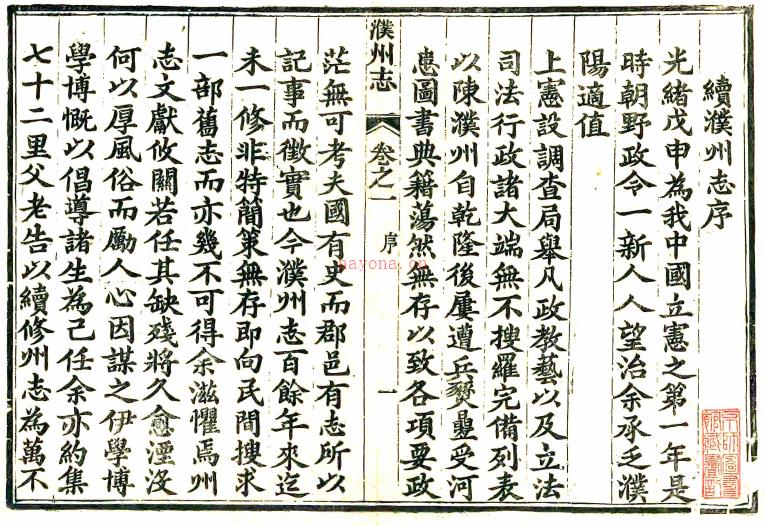 續濮州志序
光緒戊申為我中國立憲之第一年是
時朝野政令一新人人望治余承乏濮
陽適值
上憲設調查局舉凡政教藝以及立法
司法行政諸大端無不搜羅完備列表
以陳濮州自乾隆後屢遭兵燹疊受河
患圖書典籍蕩然無存以致各項要政
濮州志 卷之一 序 一
茫無可考夫國有史而郡邑有志所以
記事而徵實也今濮州志百餘年來迄
未一修非特簡策無存即向民間搜求
一部舊志而亦幾不可得余滋懼焉州
志文獻攸關若任其缺殘將久愈湮沒
何以厚風俗而勵人心因謀之伊學博
學博慨以倡導諸生為己任余亦約集
七十二里父老告以續修州志為萬不
nayona.cn